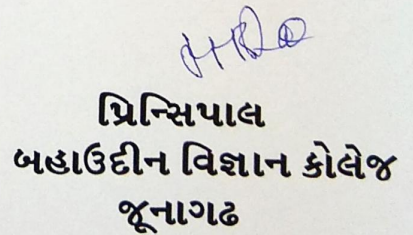 પ્રિન્સિપાલ
બહાઉદીન વિજ્ઞાન કોલેજ
જૂનાગઢ